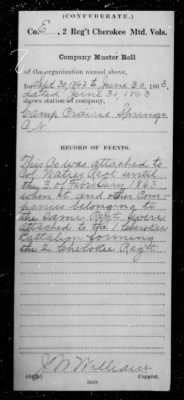 (CONFEDERATE.)
Co. E, 2 Reg't Cherokee Mtd. Vols.
Company Muster Roll
of the organization named above,
for Sept 30, 1862 to June 30, 1863,
dated June 30, 1863
shows station of company,
Camp Prairie Springs
C.N.
RECORD OF EVENTS.
This Co was attached to
Col Waties Regt until
the 3 of February 1863
when it and other Com-
panies belonging to
the same Regt were
attached to the 1 Cherokee
Battalion forming
the 2 Cherokee Regt
Copyist.